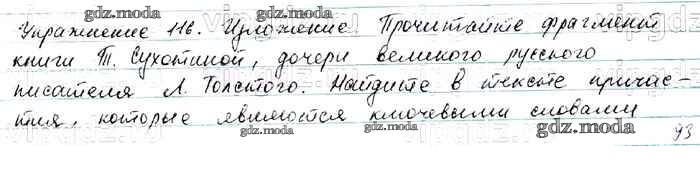 Упражнение 116. Изложение Прочитайте фрагмент
книги Т. Сухотиной, дочери великого русского
писателя Л. Толстого. Найдите в тексте причас-
тия, которые являются ключевыми словами
93